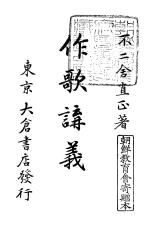 不二舍直正著
作歌講義
東京 大倉書店發行
朝鮮教育會寄贈本